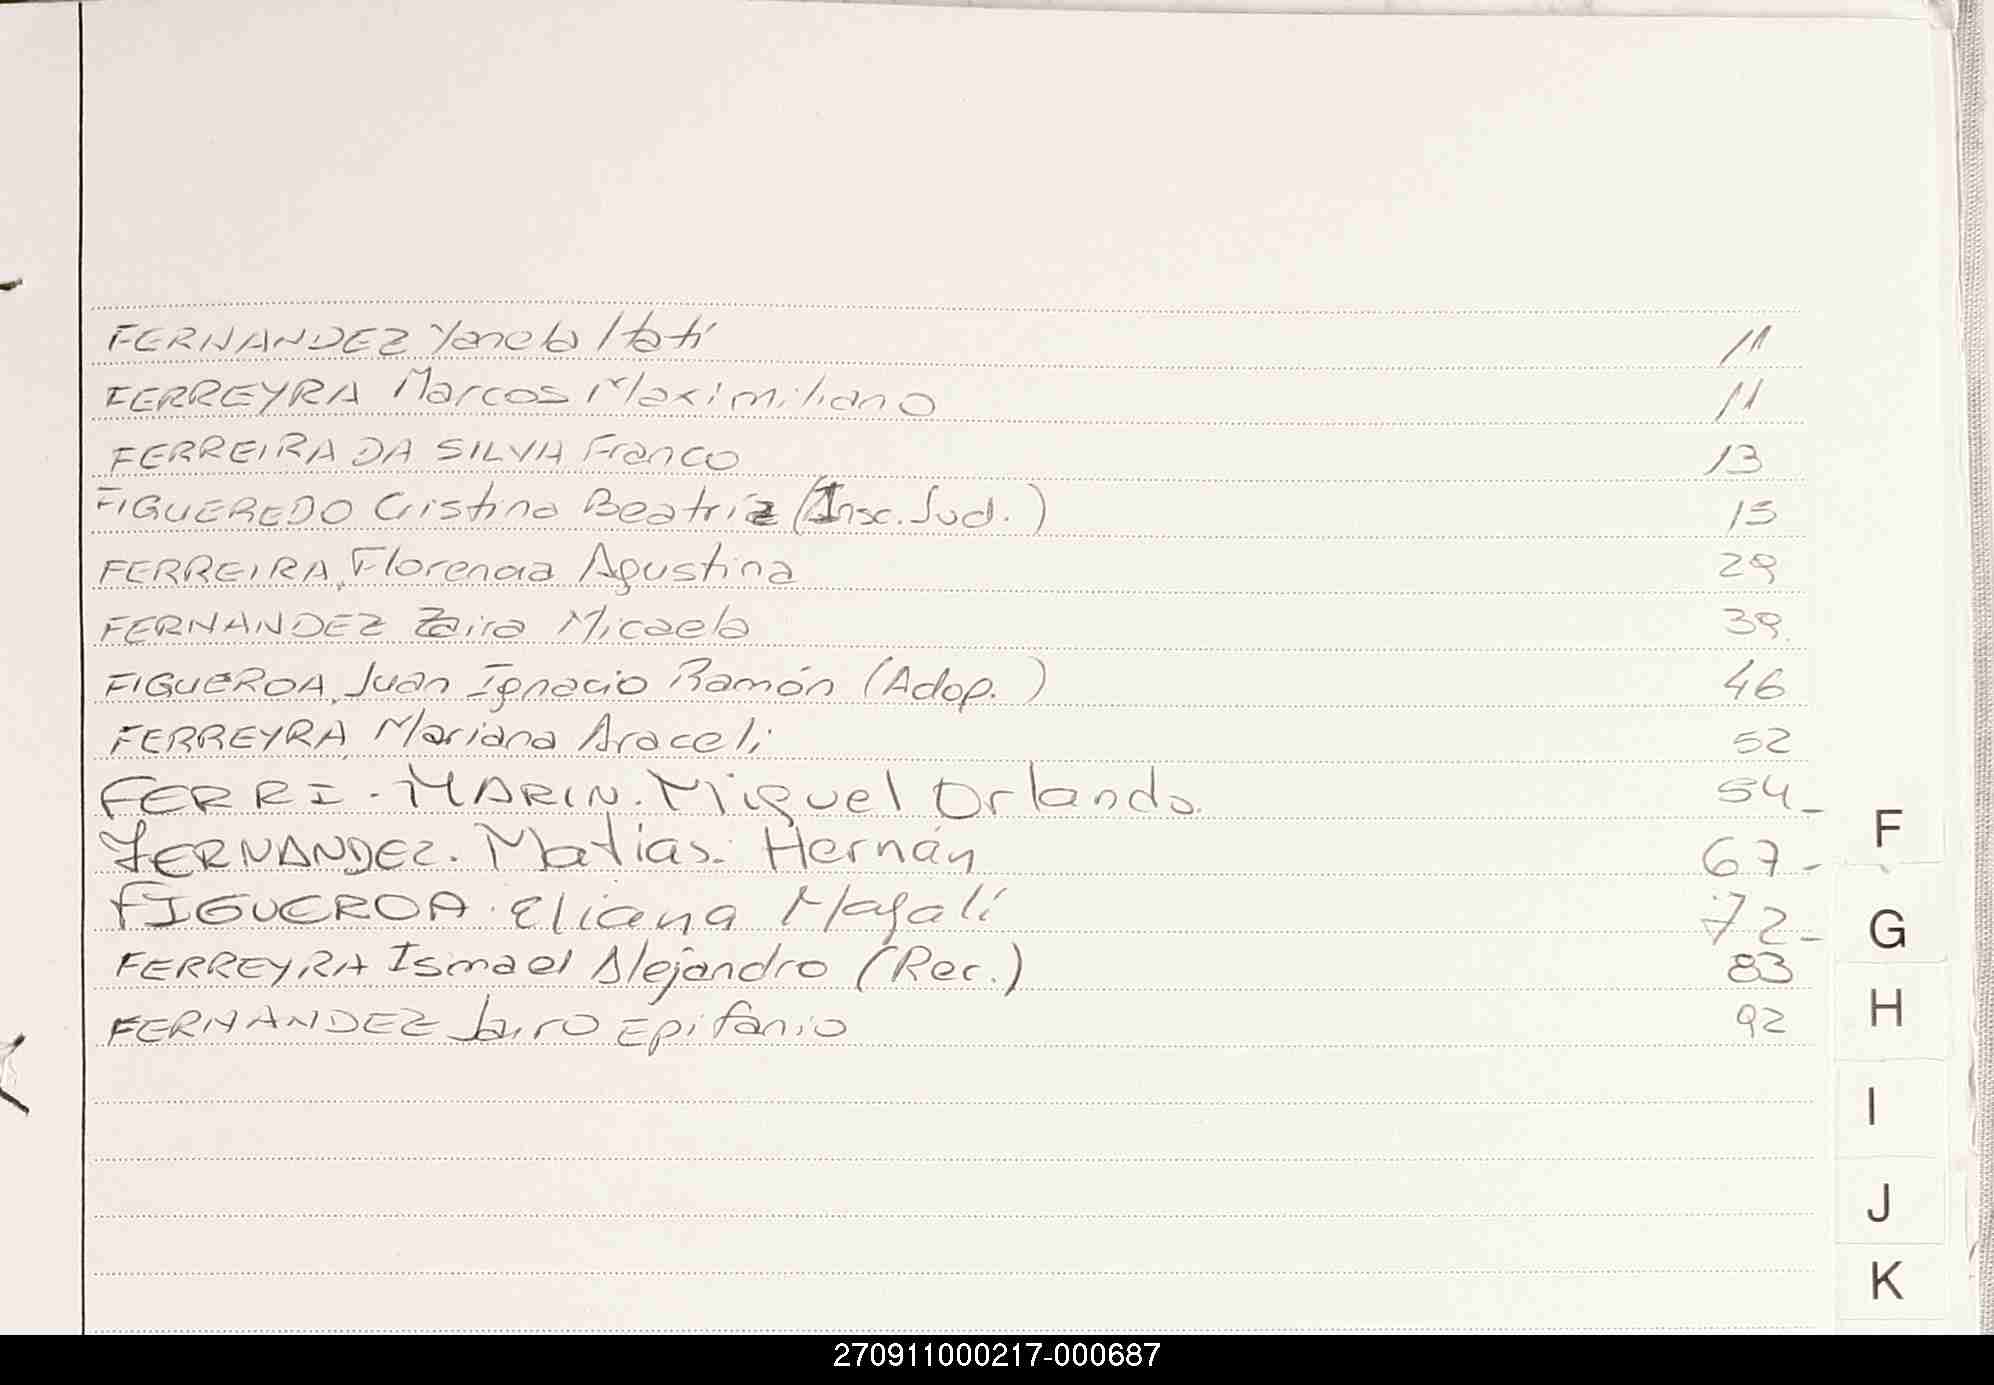 FERNANDEZ Yanela Itatí 11
FERREYRA Marcos Maximiliano 11
FERREIRA DA SILVA Franco 13
FIGUEREDO Cristina Beatriz (Insc. Jud.) 15
FERREIRA, Florencia Agustina 29
FERNANDEZ Zaira Micaela 39.
FIGUEROA, Juan Ignacio Ramón (Adop.) 46
FERREYRA, Mariana Araceli 52
FERRI - MARIN. Miguel Orlando. 54-
FERNANDEZ. Matias. Hernán 67-
FIGUEROA. Eliana Magalí 72-
FERREYRA Ismael Alejandro (Rec.) 83
FERNANDEZ Jairo Epifanio 92
F
G
H
I
J
K
270911000217-000687